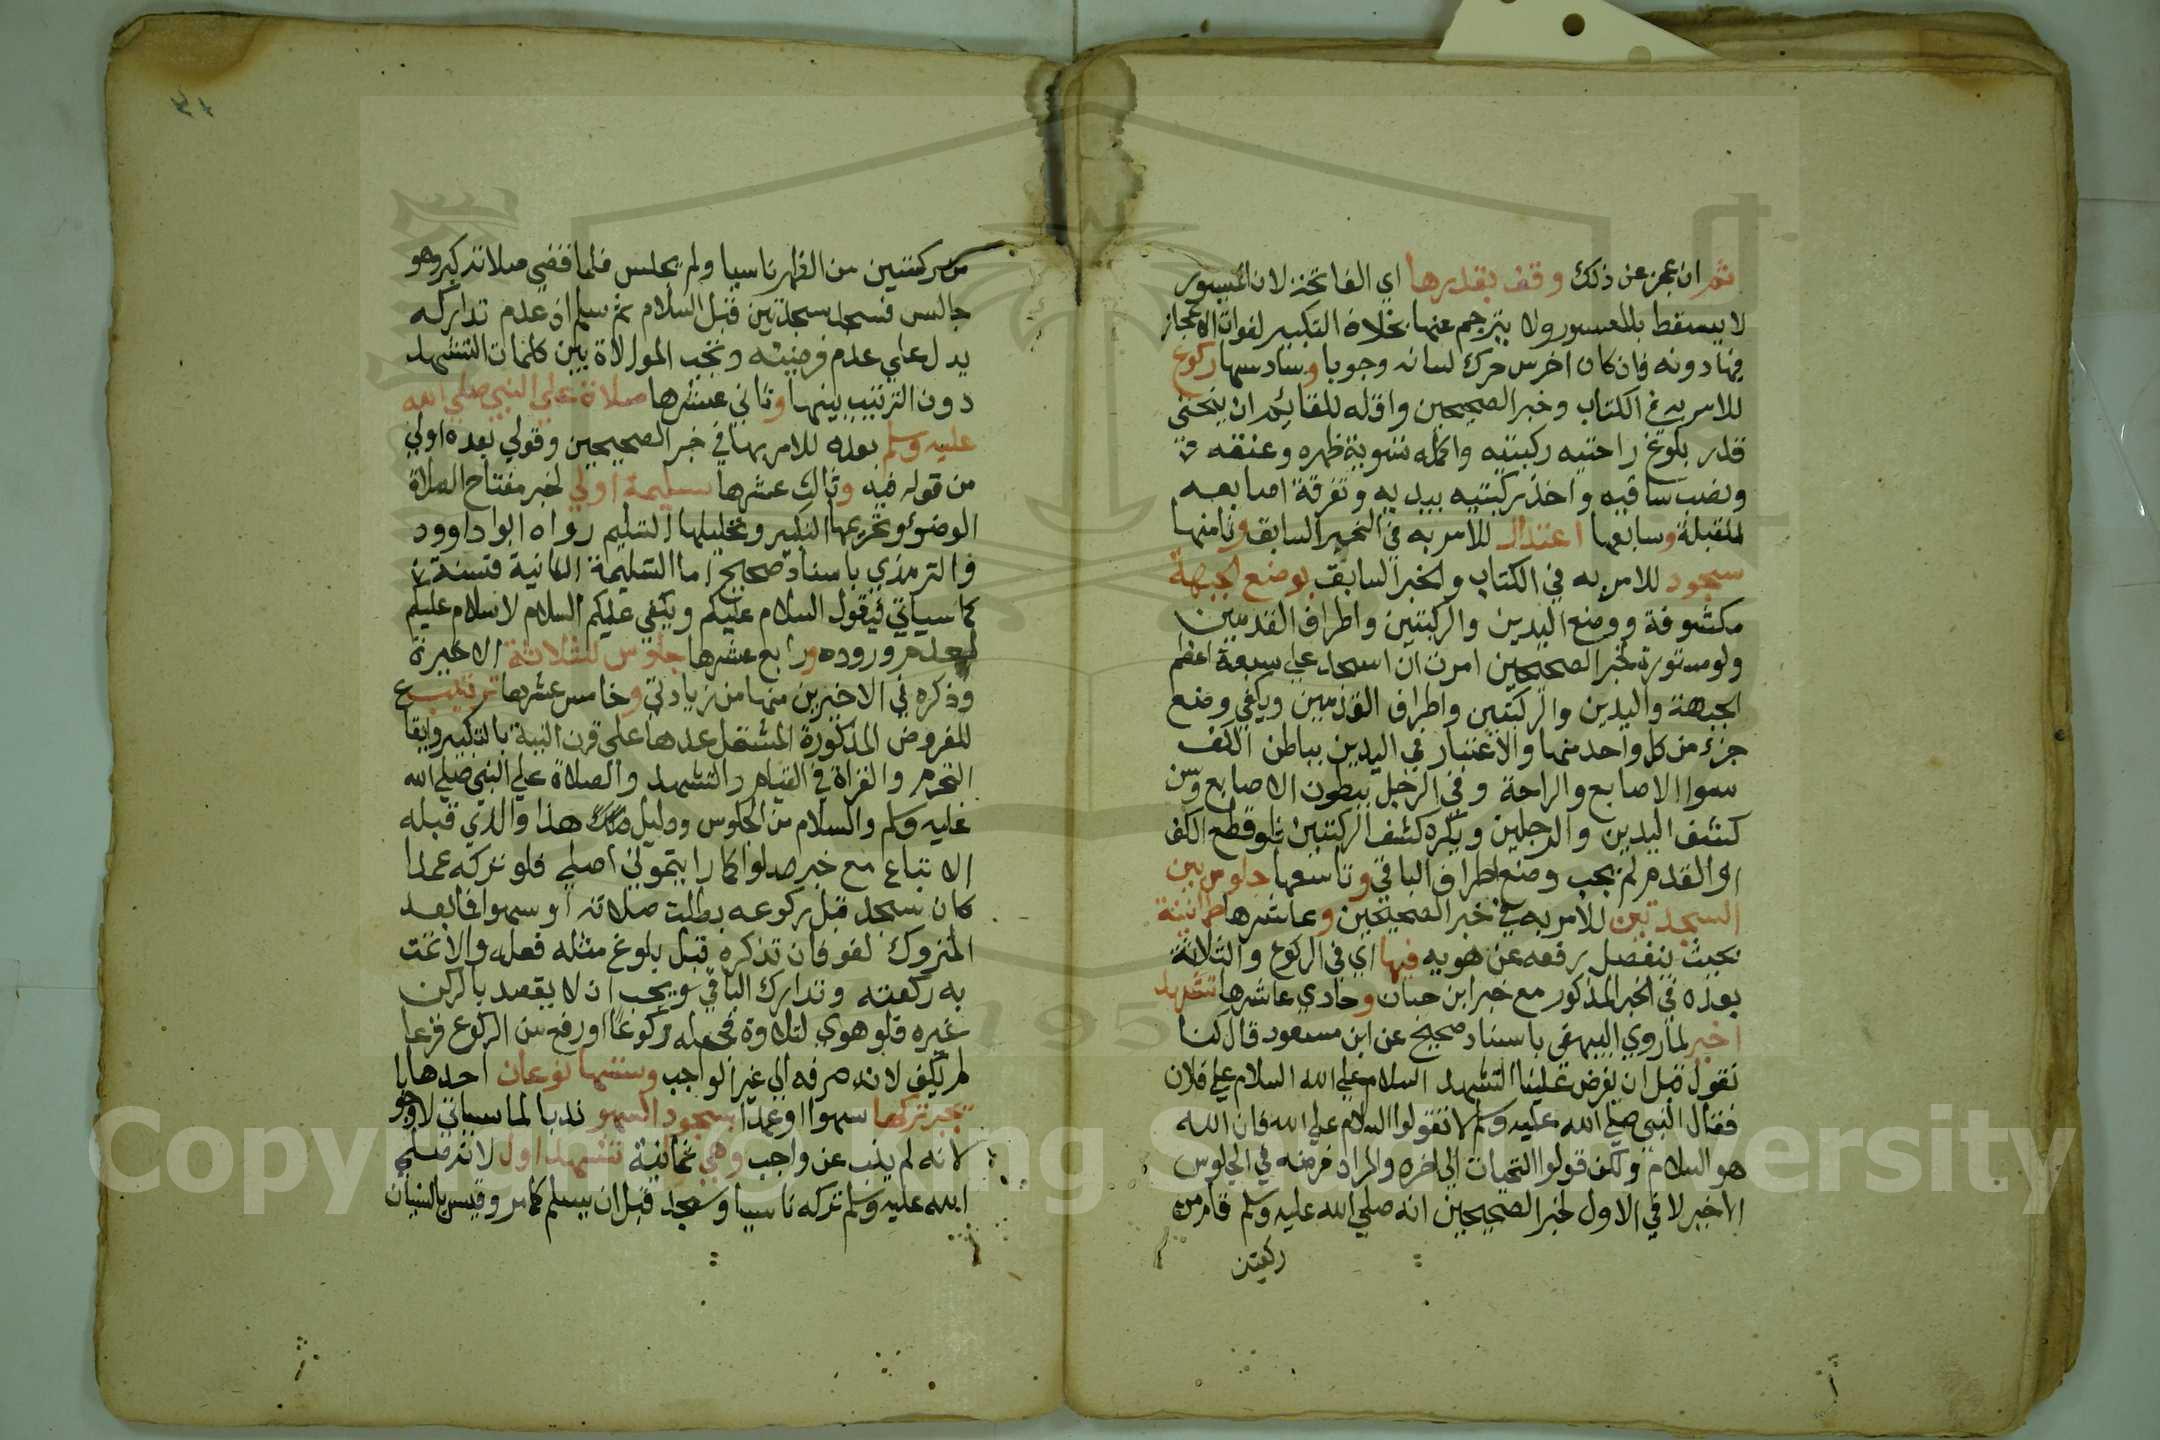 ثم ان عجز عن ذلك وقف بقدرها اي الفاتحة لان الميسور
لا يسقط بالمعسور ولا يترجم عنها بخلاف التكبير لفوات الاعجاز
فيها دونه فان كان اخرس حرك لسانه وجوبا وسادسها ركوع
للامر به في الكتاب وخبر الصحيحين واقله للقائم ان ينحني
قدر بلوغ راحتيه ركبتيه واكمله تسوية ظهره وعنقه
ونصب ساقيه واخذ ركبتيه بيديه وتفرقة اصابعه
للقبلة وسابعها اعتدال للامر به في الخبر السابق وثامنها
سجود للامر به في الكتاب والخبر السابق بوضع الجبهة
مكشوفة ووضع اليدين والركبتين واطراف القدمين
ولو مستورة لخبر الصحيحين امرت ان اسجد على سبعة اعظم
الجبهة واليدين والركبتين واطراف القدمين ويكفي وضع
جزء من كل واحد منها والاعتبار في اليدين بباطن الكف
سوا الاصابع والراحة وفي الرجل ببطون الاصابع وسن
كشف اليدين والرجلين ويكره كشف الركبتين فلو قطع الكف
او القدم لم يجب وضع اطراف الباقي وتاسعها جلوس بين
السجدتين للامر به في خبر الصحيحين وعاشرها طمانينة
بحيث ينفصل رفعه عن هويه فيها اي في الركوع والثلاثة
بعده في الخبر المذكور مع خبر ابن حبان وحادي عاشرها تشهد
اخير لما روي البيهقي باسناد صحيح عن ابن مسعود قال كنا
نقول قبل ان يفرض علينا التشهد السلام على الله السلام على فلان
فقال النبي صلى الله عليه وسلم لا تقولوا السلام على الله فان الله
هو السلام ولكن قولوا التحيات الي اخره والمراد فرضه في الجلوس
الاخير لا في الاول لخبر الصحيحين انه صلى الله عليه وسلم قام من
ركعتين
من ركعتين من الظهر ناسيا ولم يجلس فلما قضي صلاته كبر وهو
جالس فسجد سجدتين قبل السلام ثم سلم اذ عدم تداركه
يدل على عدم فرضيته وتجب الموالاة بين كلمات التشهد
دون الترتيب بينها وثاني عشرها صلاة على النبي صلى الله
عليه وسلم بعده للامر بها في خبر الصحيحين وقولي بعده اولي
من قوله فيه وثالث عشرها تسليمة اولي لخبر مفتاح الصلاة
الوضوء وتحريمها التكبير وتحليلها التسليم رواه ابوا داوود
والترمذي باسناد صحيح اما التسليمة الثانية فسنة
كما سياتي فيقول السلام عليكم ويكفي عليكم السلام لا سلام عليكم
لعدم وروده ورابع عشرها جلوس للثلاثة الاخيرة
وذكره في الاخيرين منها من زيادتي وخامس عشرها ترتيب
للفروض المذكورة المشتمل عدها على قرن النية بالتكبير وايقا
التحرم والقراة في القيام والتشهد والصلاة على النبي صلى الله
عليه وسلم والسلام من الجلوس ودليل هذا والذي قبله
الاتباع مع خبر صلوا كما رايتموني اصلي فلو تركه عمدا
كان سجد قبل ركوعه بطلت صلاته او سهوا فما بعد
المتروك لغو فان تذكره قبل بلوغ مثله فعله والا تمت
به ركعته وتدارك الباقي ويجب ان لا يقصد بالركن
غيره فلو هوي لتلاوة فجعله ركوعا او رفع من الركوع فزعا
لم يكف لانه صرفه الي غير الواجب وسننها نوعان احدهما ما
يجبر تركها سهوا او عمدا بسجود السهو ندبا لما سياتي لا وجو
لانه لم ينب عن واجب وهي ثمانية تشهد اول لانه صلى
الله عليه وسلم تركه ناسيا وسجد قبل ان يسلم كما مر وقيس بالنسيان
Copyright © King Saud University
195